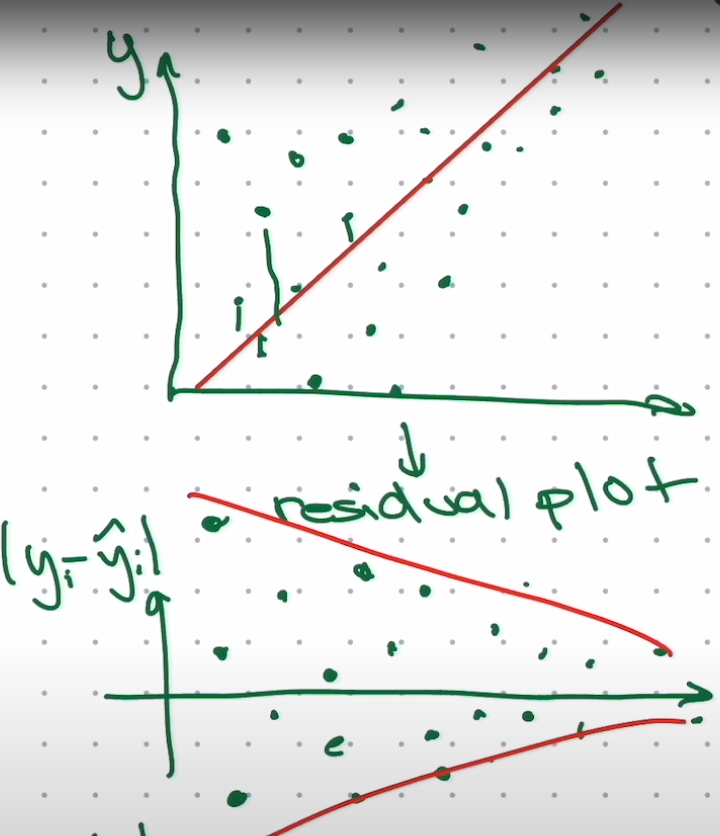 y
residual plot
|yᵢ-ŷᵢ|